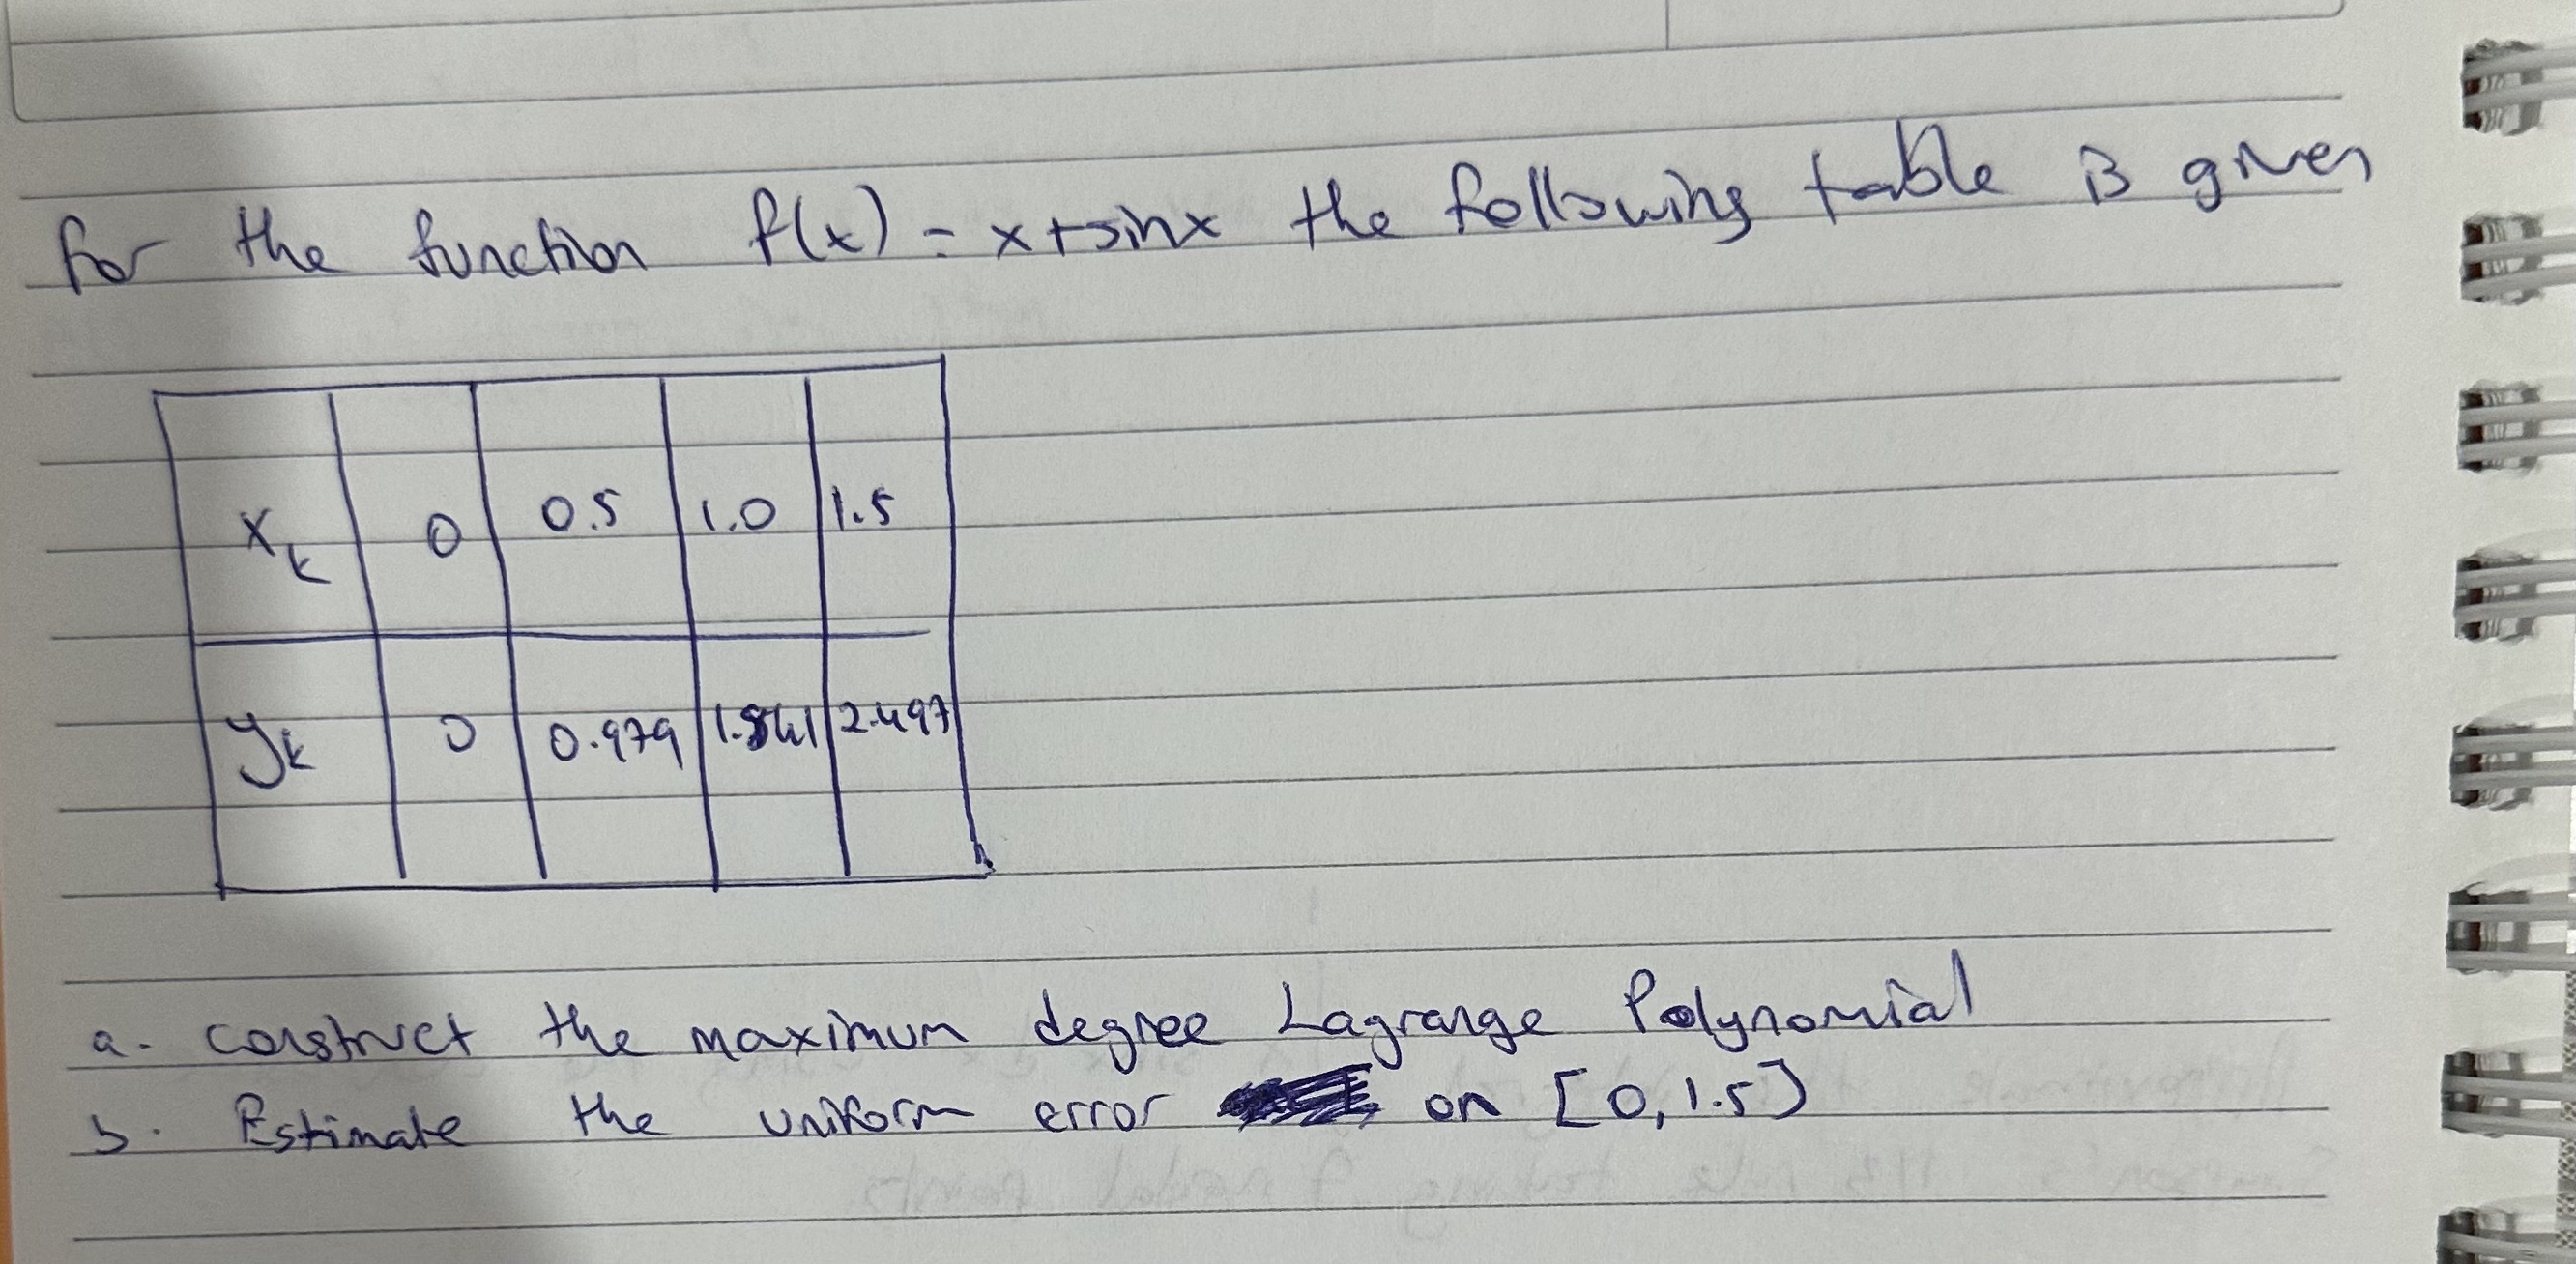 for the function f(x) = x+sinx the following table is given
xk 0 0.5 1.0 1.5
yk 0 0.979 1.841 2.497
a. construct the maximum degree Lagrange Polynomial
b. Estimate the uniform error on [0,1.5]